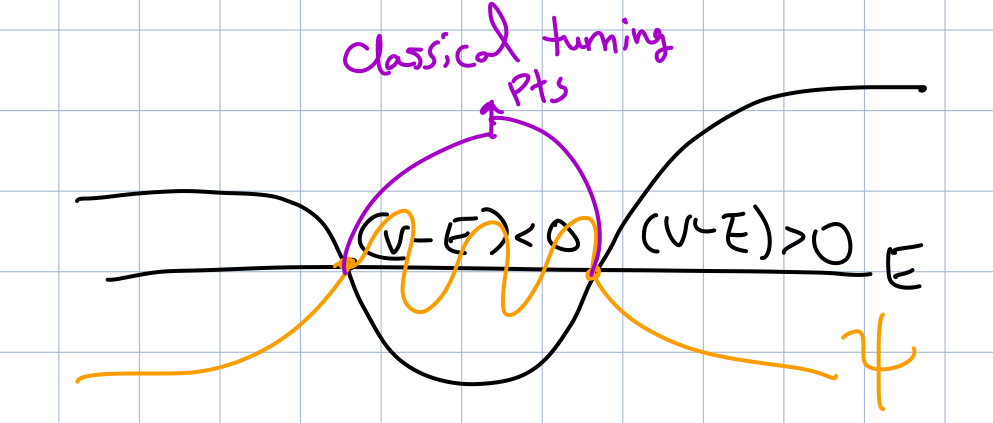 Classical turning
Pts
(V-E)<0 (V-E)>0
E
ψ